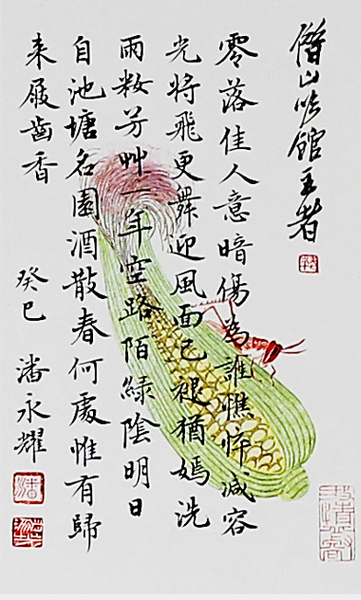 借山吟館主者
零落佳人意暗傷為誰憔悴減容
光將飛更舞迎風面已褪猶嫣洗
雨籹芳艸一年空路陌綠陰明日
自池塘名園酒散春何處惟有歸
来屐齒香
癸巳 潘永耀